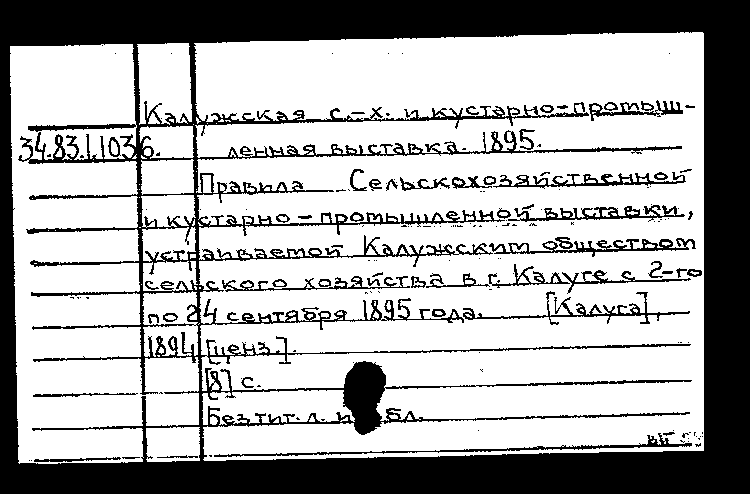 Калужская с.-х. и кустарно-промыш-
34.83.1.1036. ленная выставка. 1895.
Правила Сельскохозяйственной
и кустарно-промышленной выставки,
устраиваемой Калужским обществом
сельского хозяйства в г. Калуге с 2-го
по 24 сентября 1895 года. [Калуга],
1894 [ценз.].
[8] с.
Без тит. л. и обл.